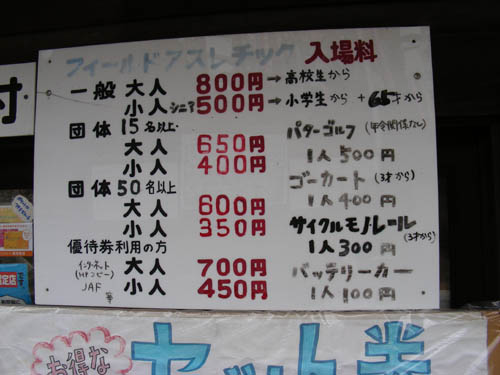 フィールドアスレチック 入場料
一般 大人 800円→高校生から
小人 シニア 500円→小学生から + 65才から
団体 15名以上
大人 650円
小人 400円
団体 50名以上
大人 600円
小人 350円
優待券利用の方
インターネット (HPコピー) JAF 等
大人 700円
小人 450円
パターゴルフ (年令関係なし)
1人 500円
ゴーカート (3才から)
1人 400円
サイクルモノレール (3才から)
1人 300円
バッテリーカー
1人 100円
付
お得な
セット券